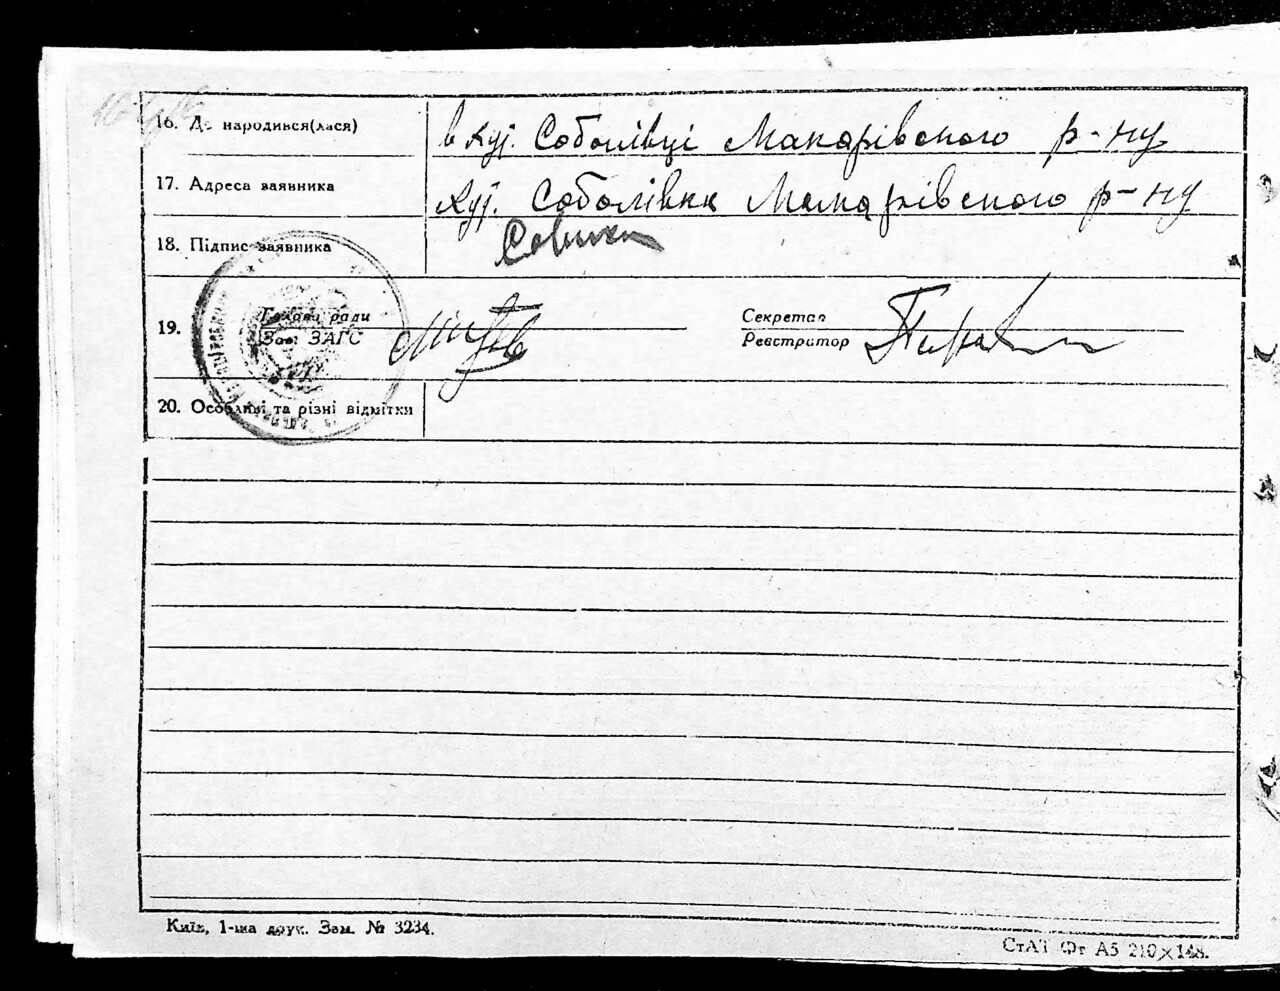 16. Де народився(лася) в хут. Соболівці Макарівського р-ну
17. Адреса заявника хут. Соболівка Макарівського р-ну
18. Підпис заявника
19. Голова ради
Зав. ЗАГС
Секретар
Реєстратор
20. Особливі та різні відмітки
Київ, 1-ша друк. Зам. № 3234.
СтАТ Фт А5 210×148.